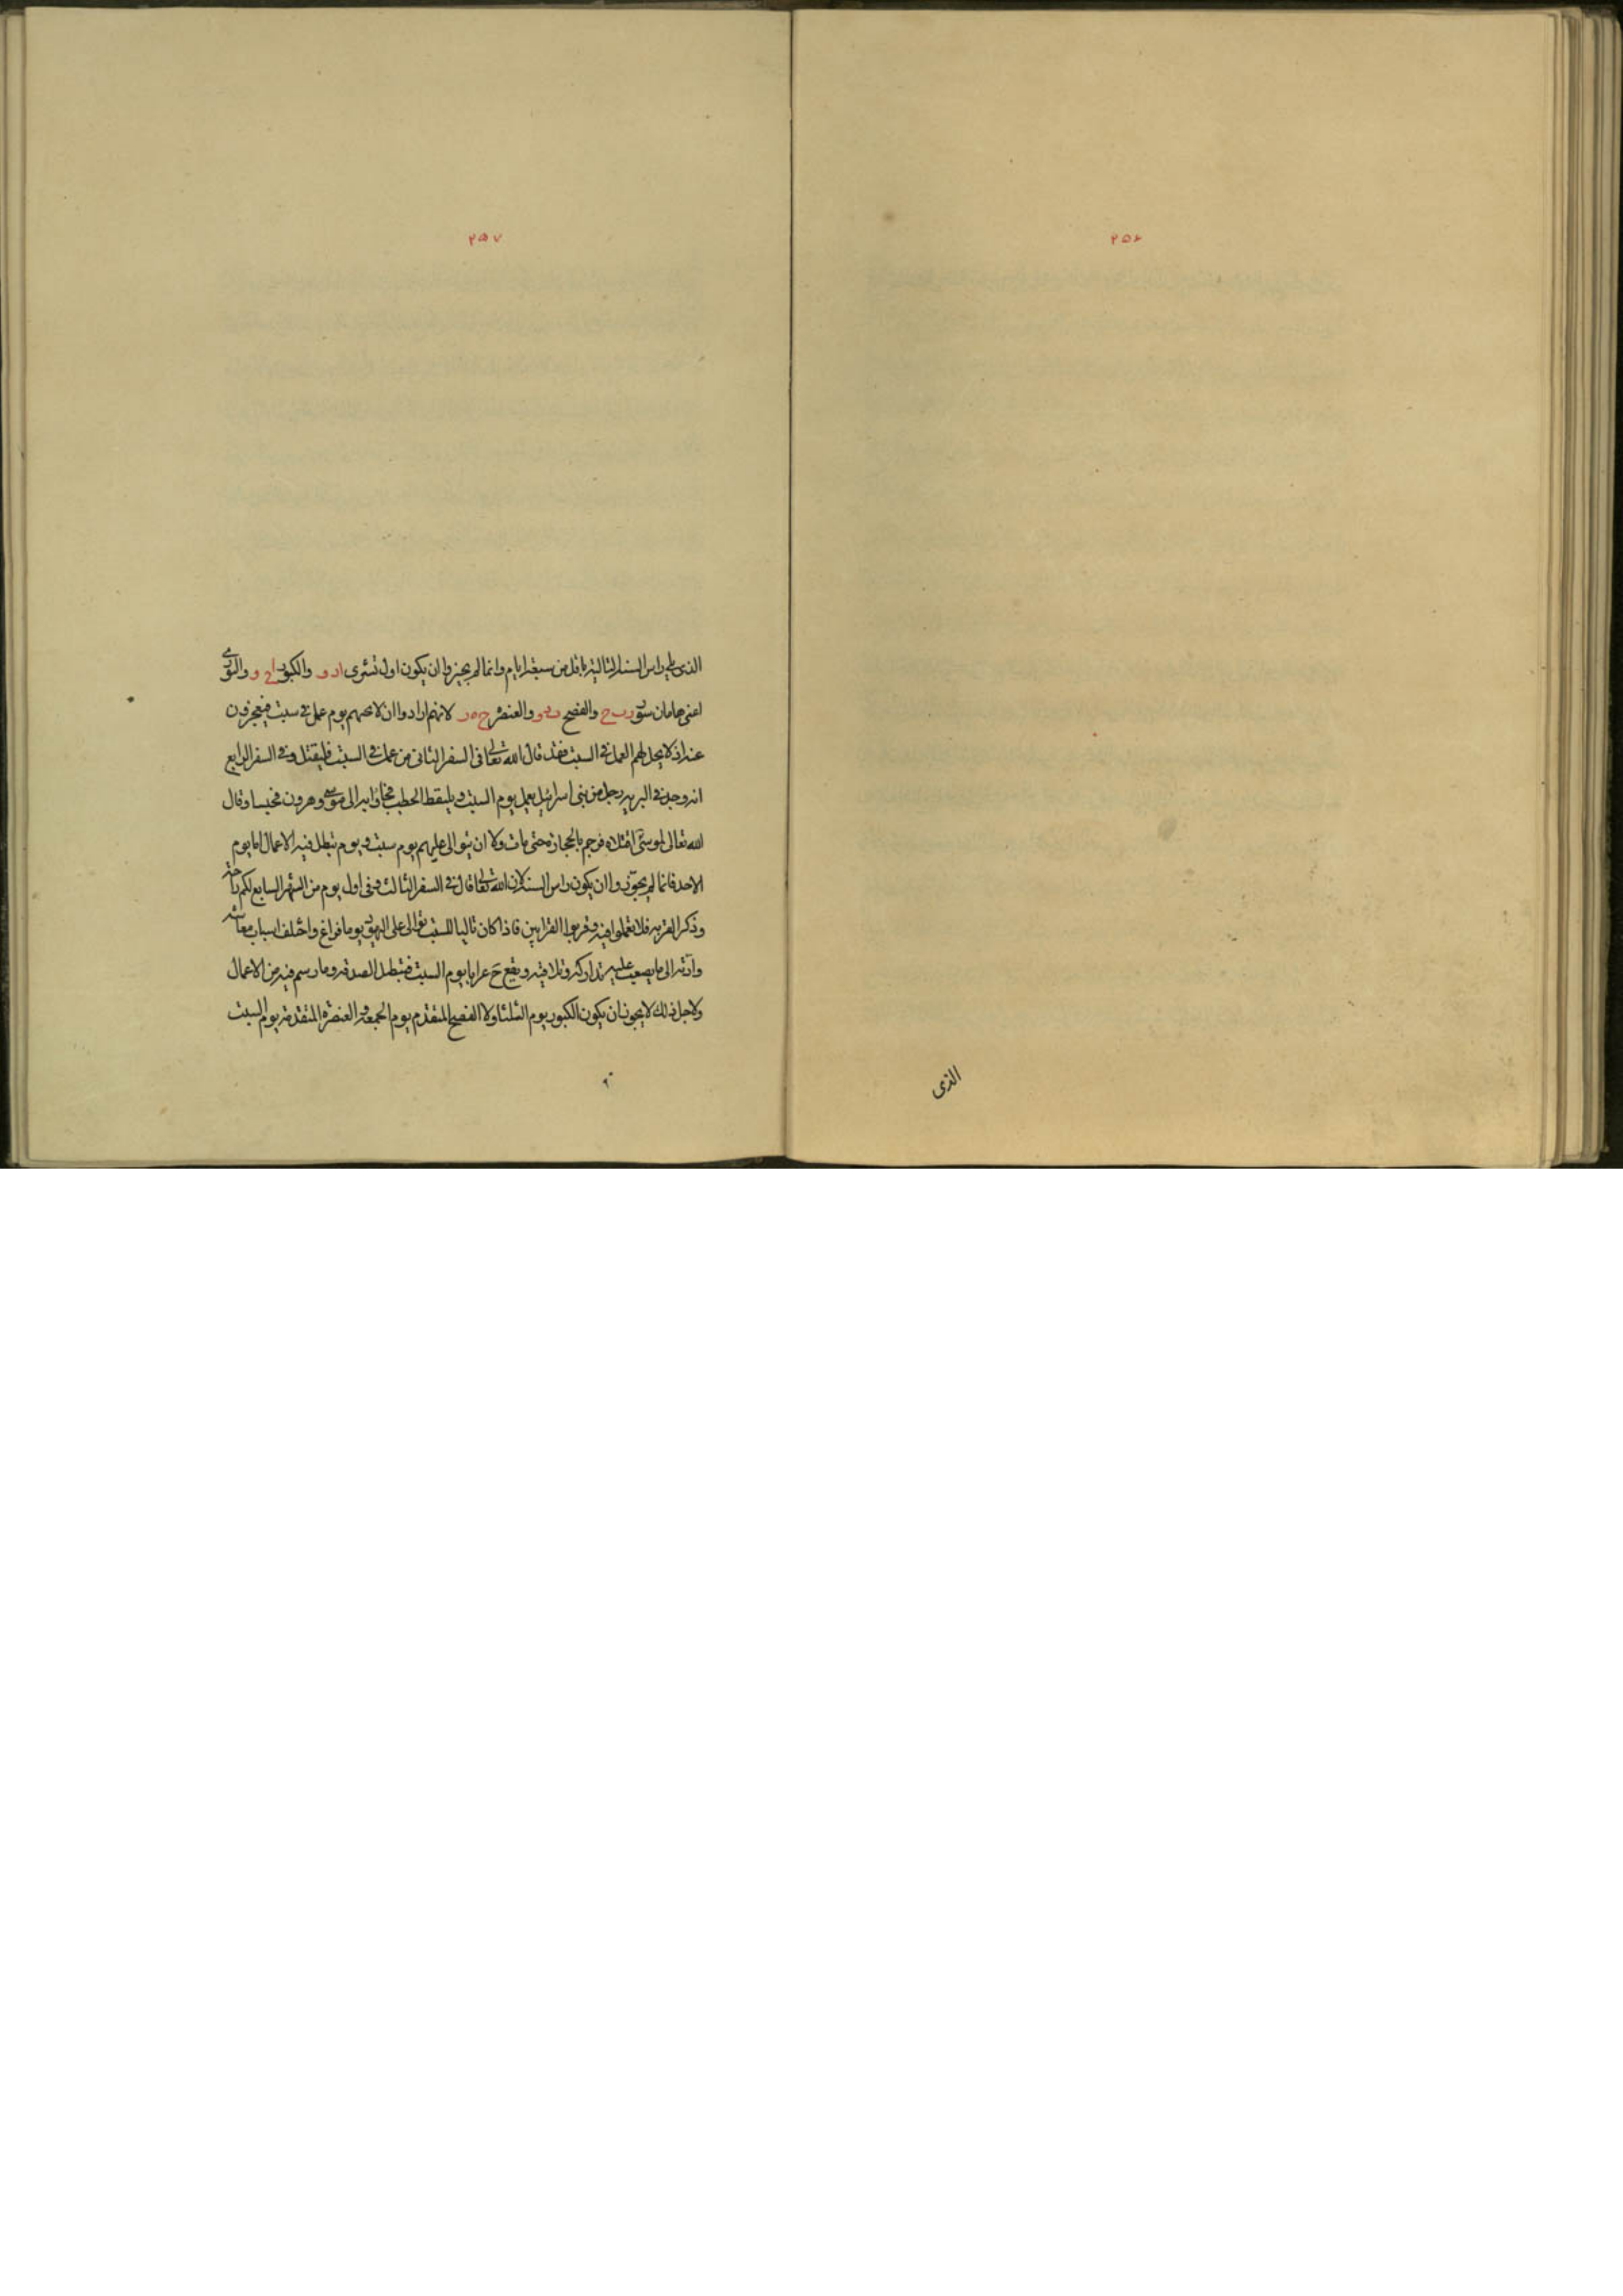 ٢٥٦
الذى
٢٥٧
الذى يلى راس السنة التالية باقل من سبعة ايام وانما لم يجيزوا ان يكون اول تشرى ادو والكبور اجو والبورى
اعنى هامان سور بدح والفصح بدو والعنصرة لانهم ارادوا ان لا يحمعهم يوم عمل فى سبت فيعجزون
عنه اذ لا يحل لهم العمل فى السبت فقد قال الله تعالى فى السفر الثانى من عمل فى السبت فليقتل وفى السفر الرابع
انه وجد فى البرية رجل من بنى اسرائيل يعمل يوم السبت ويلتقط الحطب فجاؤا به الى موسى وهرون فحبسا وقال
الله تعالى لموسى اقتلاه فرجم بالحجارة حتى مات وكلا ان يتوالى عليهم يوم سبت ويوم تبطل فيه الاعمال اما يوم
الاحد فانما لم يجوّزوا ان يكون راس السنة لان الله تعالى قال فى السفر الثالث وفى اول يوم من الشهر السابع لكم راحة
وذكر القربة فلا تعملوا فيه وقربوا القرابين فاذا كان تاليا للسبت توالى على اليهودى يوما فراغ واختلف اسباب معاشه
وادته الى ما يصعب عليه تداركه وتلافيه ويقع ح عرابا يوم السبت فتبطل الصدقة وما رسم فيه من الاعمال
ولاجل ذلك لا يجوز ان يكون الكبور يوم الثلثا ولا الفصح المتقدم يوم الجمعة والعنصرة المتقدمة يوم السبت